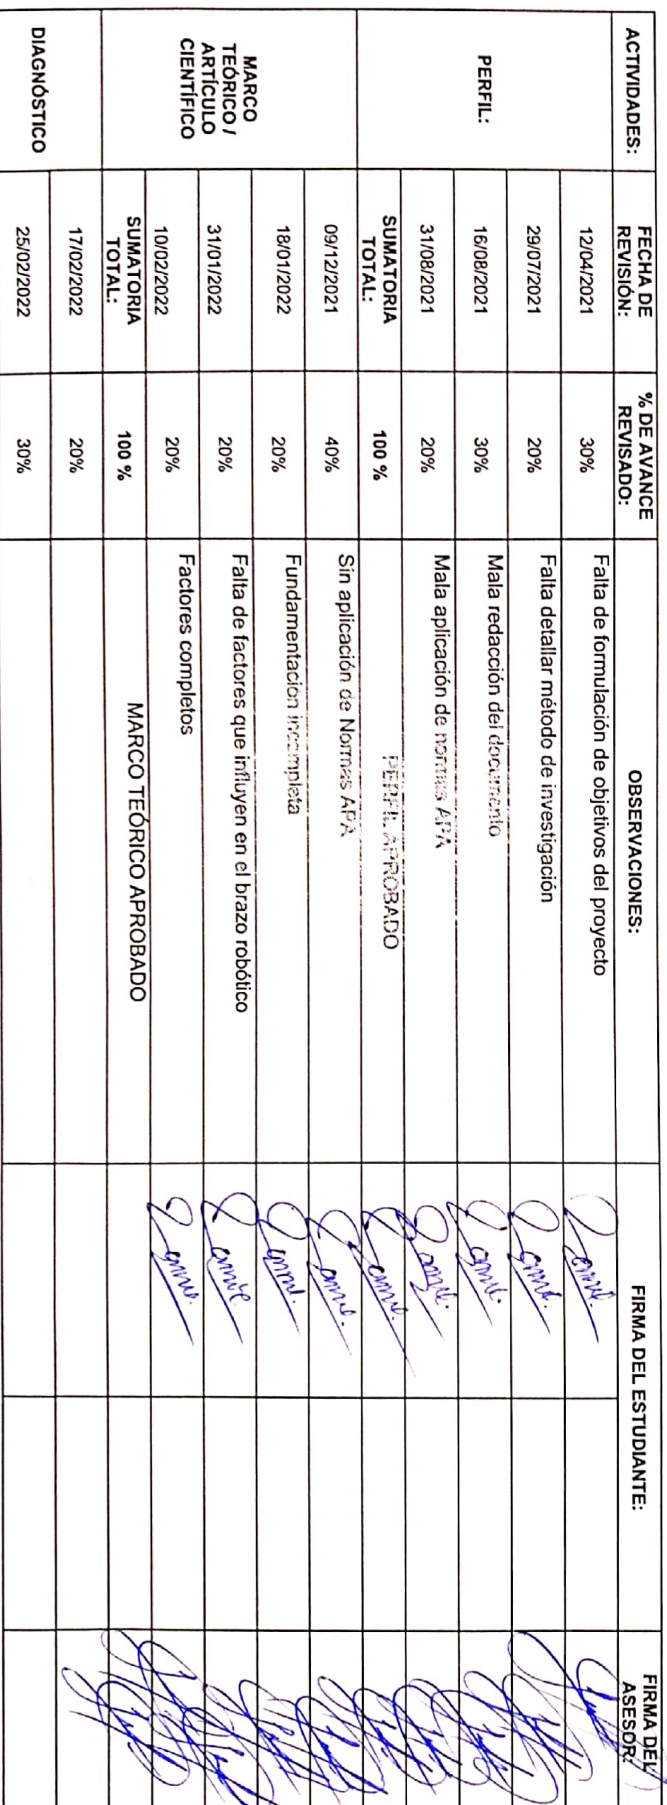 ACTIVIDADES: FECHA DE REVISIÓN: % DE AVANCE REVISADO: OBSERVACIONES: FIRMA DEL ESTUDIANTE: FIRMA DEL ASESOR:
PERFIL:
12/04/2021 30% Falta de formulación de objetivos del proyecto
29/07/2021 20% Falta detallar método de investigación
16/08/2021 30% Mala redacción del documento
31/08/2021 20% Mala aplicación de normas APA
SUMATORIA TOTAL: 100 % PERFIL APROBADO
MARCO TEÓRICO / ARTÍCULO CIENTÍFICO
09/12/2021 40% Sin aplicación de Normas APA
18/01/2022 20% Fundamentación incompleta
31/01/2022 20% Falta de factores que influyen en el brazo robótico
10/02/2022 20% Factores completos
SUMATORIA TOTAL: 100 % MARCO TEÓRICO APROBADO
DIAGNÓSTICO
17/02/2022 20%
25/02/2022 30%